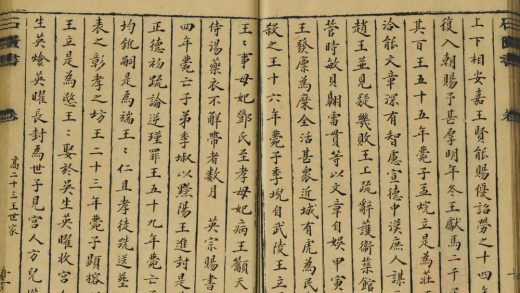 上下相安嘉王賢能賜優詔勞之十四年
復入朝賜予甚厚明年冬王獻馬二千
其百王五十五年薨子孟烷立是為莊
洽能文章深有智慮宣德中漢庶人謀
趙王並見疑幾敗王上疏辭護衛築館
管時敏貝翱雷貫等以文章自娛甲寅
王發廩為糜全活甚衆近城有虎為民
殺之王十六年薨子季堄自武陵王立
王〻事母妃鄧氏至孝母妃病王籲天
侍湯藥衣不解帶者數月 英宗賜書
四年薨亡子弟季埱以黟陽王進封是
正德初疏論逆瑾罪王五十九年薨亡
均鈋嗣是為端王〻仁且孝徒跣送塟
表之彰孝之坊王二十三年薨子顯榕
王立是為愍王〻娶於吳生英曜收宮
生英㷿英曜長封為世子見宮人方兒
高二十三王世家
石匱書
卷